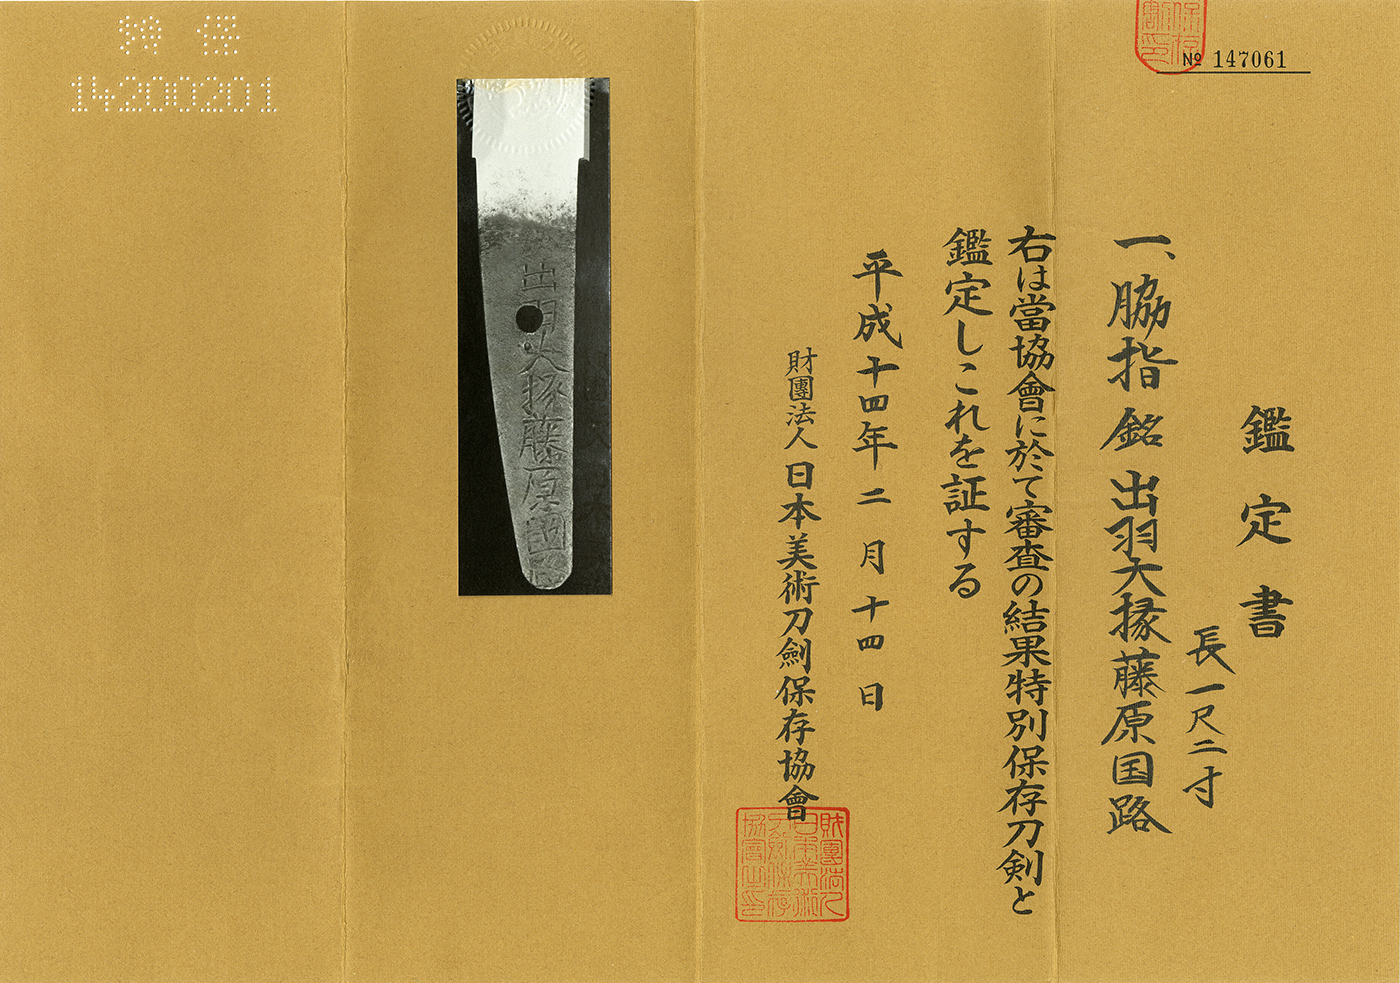 № 147061
鑑定書
長一尺二寸
一、脇指 銘 出羽大掾藤原国路
右は當協會に於て審査の結果特別保存刀剣と
鑑定しこれを証する
平成十四年二月十四日
財團法人 日本美術刀劍保存協會
出羽大掾藤原國
特 保
14200201